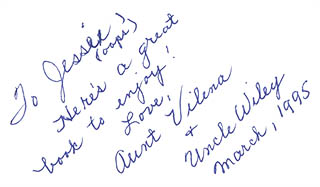 To Jessica!
(oops!)
Here's a great
book to enjoy!
Love,
Aunt Vilena
+
Uncle Wiley
March, 1995